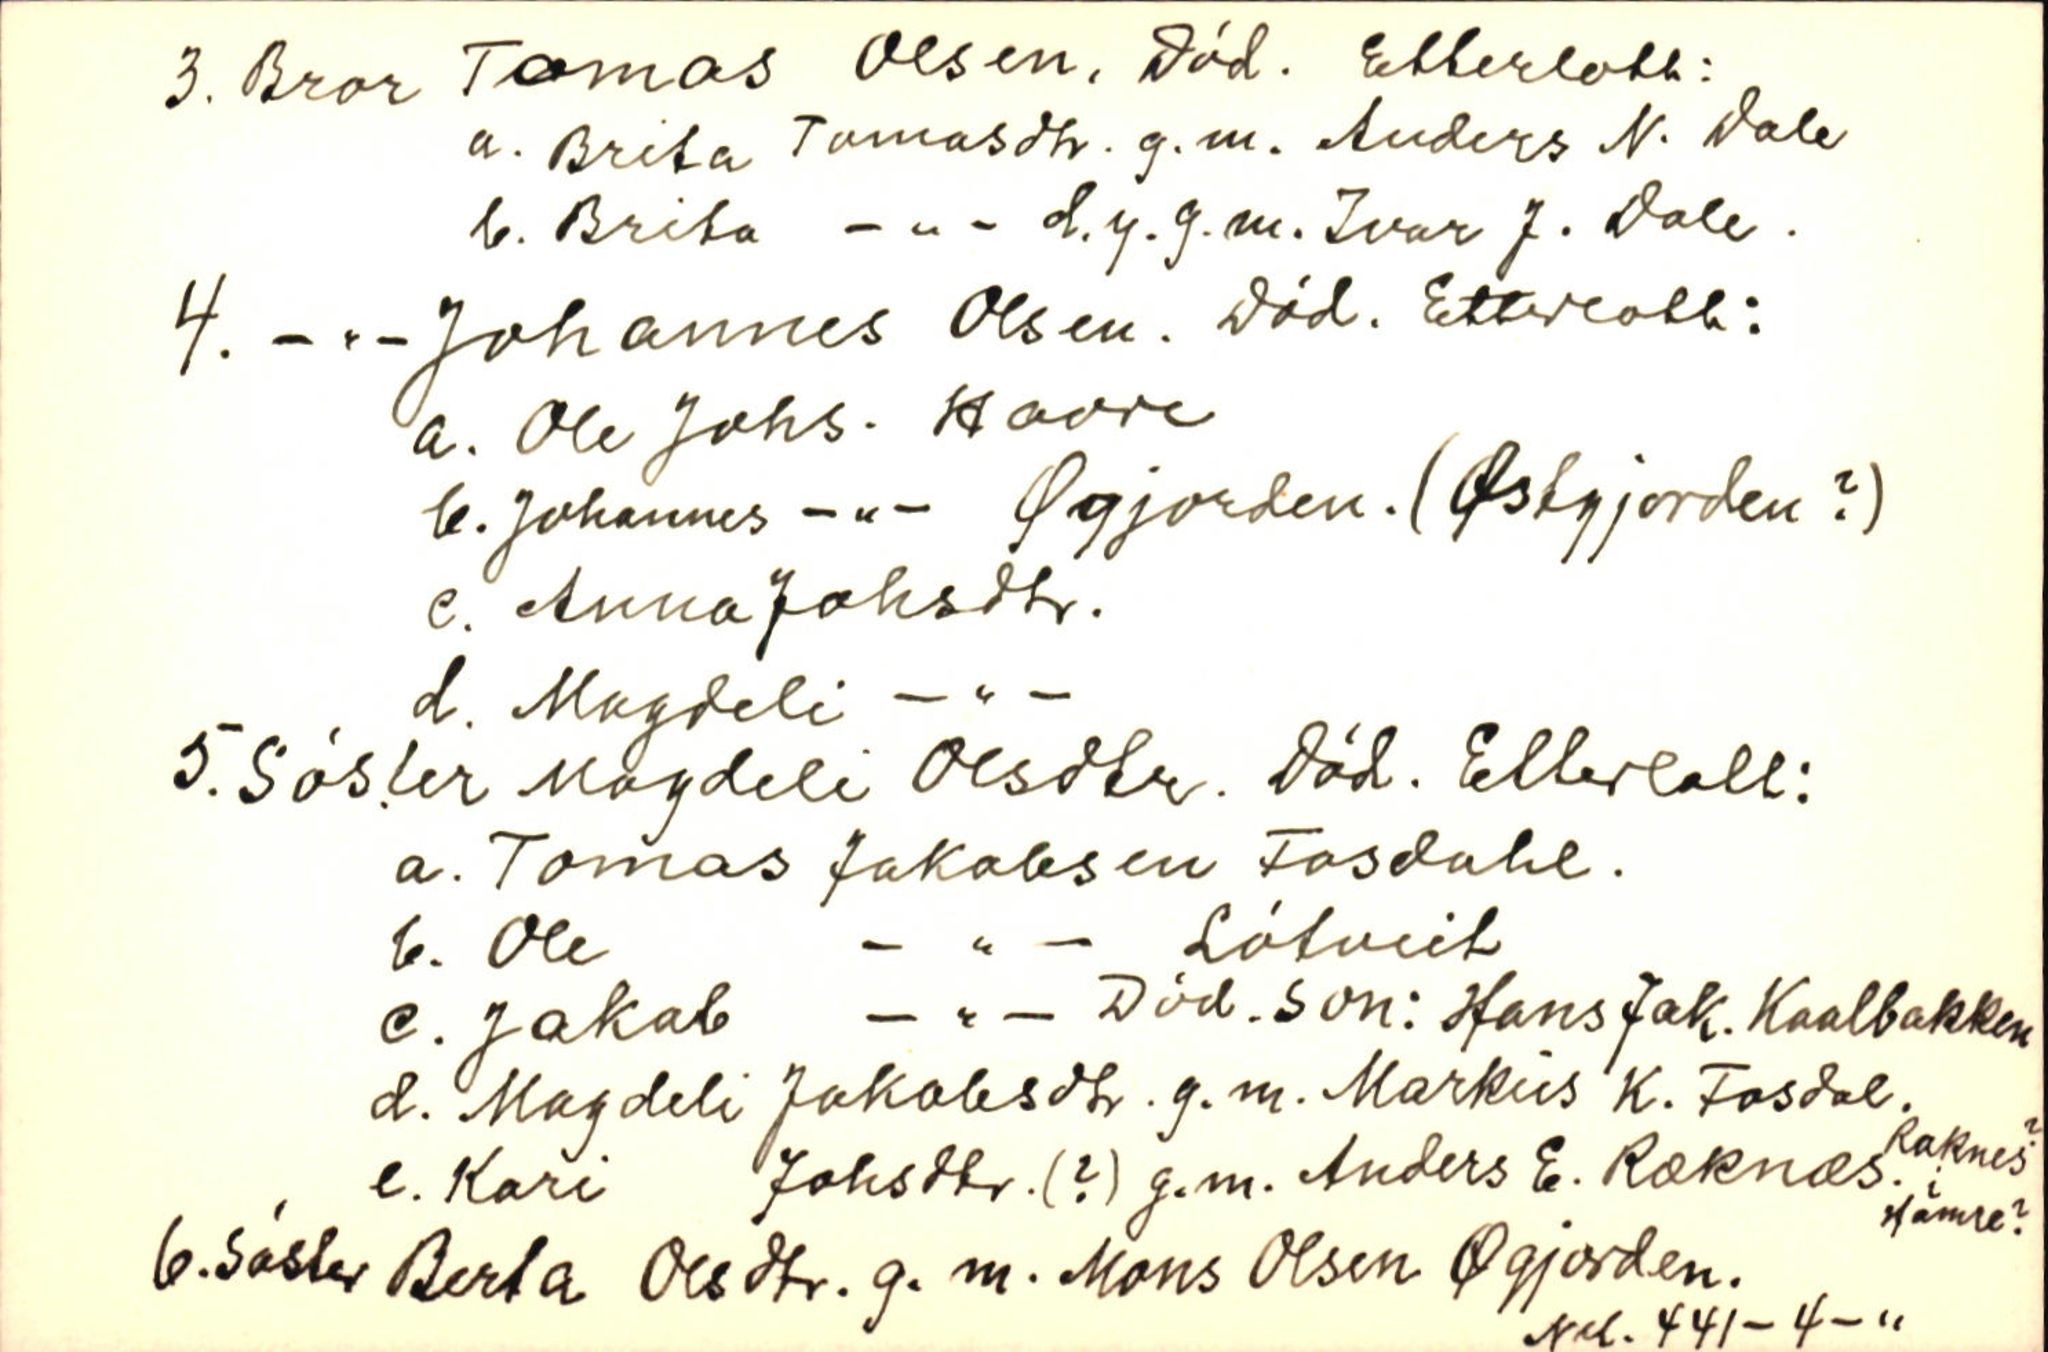 3. Bror Tomas Olsen. Död. Etterlatt:
a. Brita Tomasdtr. g.m. Anders N. Dale
b. Brita -"- d.y. g.m. Ivar J. Dale.
4. -"- Johannes Olsen. Död. Etterlatt:
a. Ole Johs. Havre
b. Johannes -"- Øgjorden. (Østgjorden?)
c. Anna Johsdtr.
d. Magdeli -"-
5. Söster Magdeli Olsdtr. Död. Etterlatt:
a. Tomas Jakobsen Fosdahl.
b. Ole -"- Lötveit
c. Jakob -"- Död. Son: Hans Jak. Kaalbakken
d. Magdeli Jakobsdtr. g.m. Markus K. Fosdal.
e. Kari Johsdtr. (?) g.m. Anders E. Ræknæs. Raknes?
i Hamre?
6. Söster Berta Olsdtr. g.m. Mons Olsen Øgjorden.
441-4-"